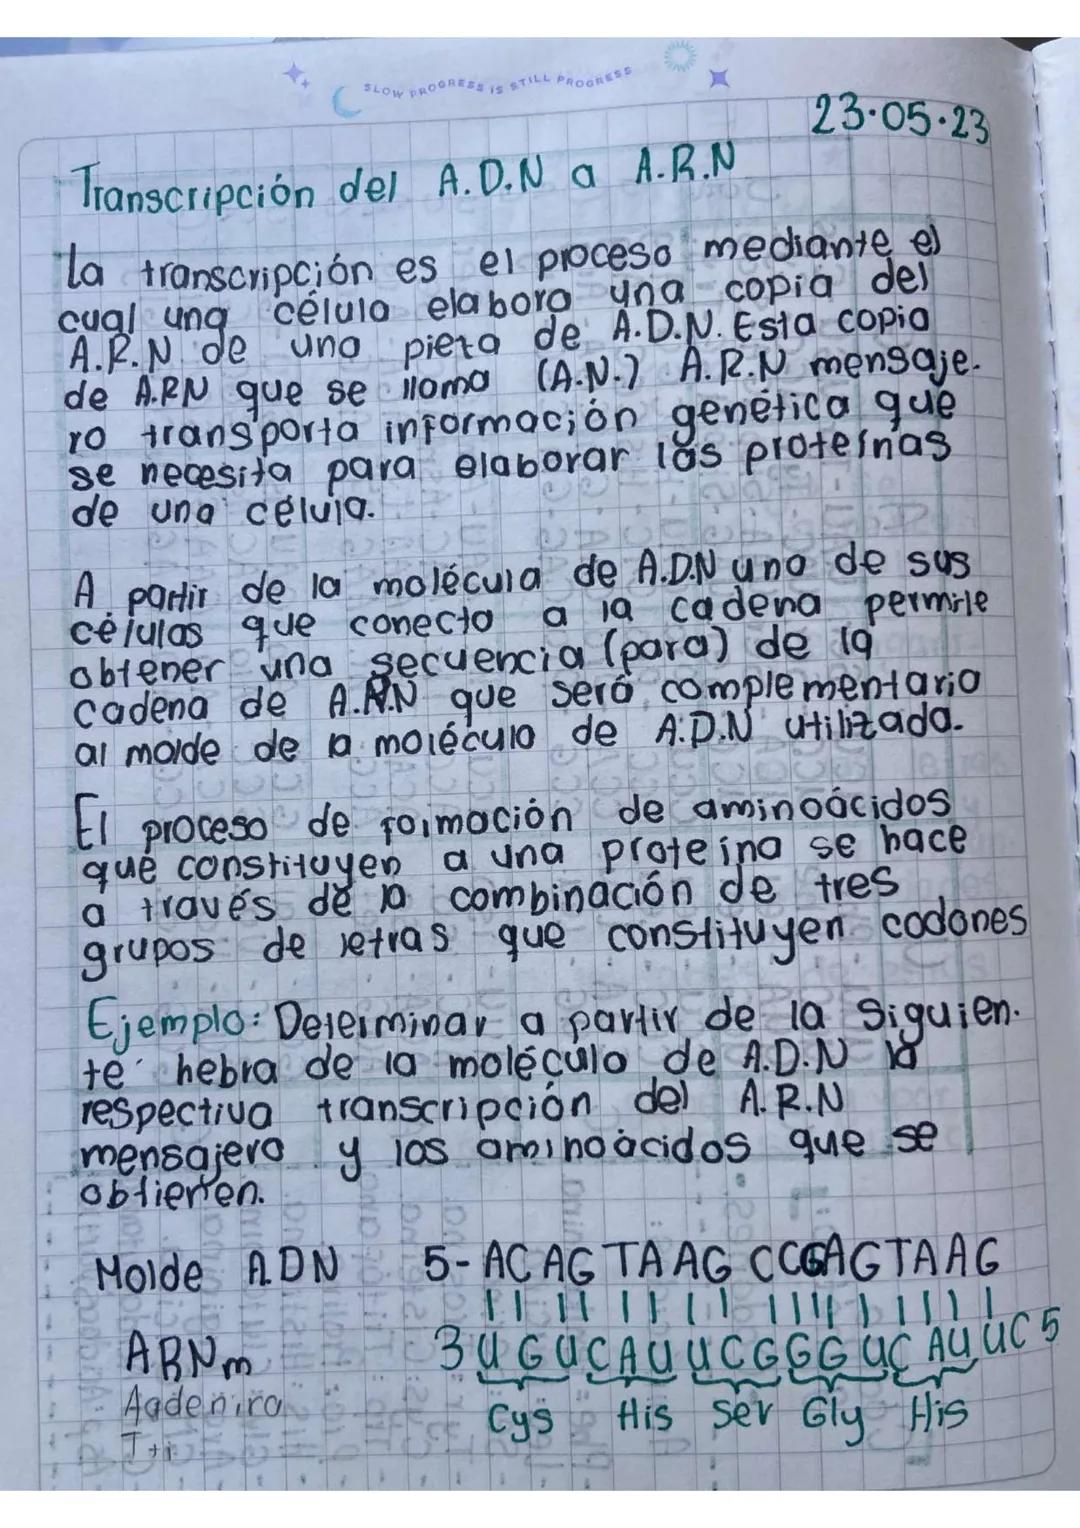 SLOW PROGRESS IS STILL PROGRESS
23.05.23
Transcripción del A.D.N a A.R.N
La transcripción es el proceso mediante el
cual una célula elabora una copia del
A.R.N de una pieza de A.D.N. Esta copia
de ARN que se llama (A.N.) A.R.N mensaje-
ro transporta información genética que
se necesita para elaborar las proteínas
de una célula.
A partir de la molécula de A.D.N una de sus
células que conecta a la cadena permite
obtener una secuencia (para) de la
cadena de A.R.N que será complementaria
al molde de la molécula de A.D.N utilizada.
El proceso de formación de aminoácidos
que constituyen a una proteína se hace
a través de la combinación de tres
grupos de letras que constituyen codones
Ejemplo: Determinar a partir de la siguien-
te hebra de la molécula de A.D.N la
respectiva transcripción del A.R.N
mensajero y los aminoácidos que se
obtienen.
Molde ADN 5-ACAGTAAGCCCAGTAAG
ARNm 3UGUCAUUCGGGUCAUUC5
Cys His Ser Gly His